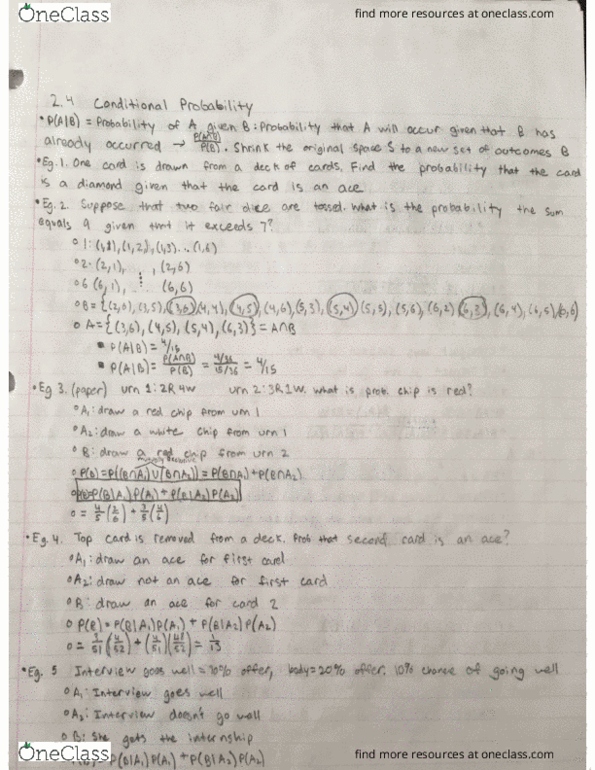 OneClass
find more resources at oneclass.com
2.4 Conditional Probability
• P(A|B) = Probability of A given B: Probability that A will occur given that B has
already occurred → P(A∩B)/P(B). Shrink the original space S to a new set of outcomes B
• Eg. 1. One card is drawn from a deck of cards. Find the probability that the card
is a diamond given that the card is an ace
• Eg. 2. Suppose that two fair dice are tossed. What is the probability the sum
equals 9 given that it exceeds 7?
o 1: (1,1), (1,2), (1,3)... (1,6)
o 2: (2,1), ⋮ , (2,6)
o 6 (6,1), ⋮ (6,6)
o B = {(2,6), (3,5), (3,6), (4,4), (4,5), (4,6), (5,3), (5,4), (5,5), (5,6), (6,2), (6,3), (6,4), (6,5), (6,6)
o A = {(3,6), (4,5), (5,4), (6,3)} = A∩B
▪ P(A|B) = 4/15
▪ P(A|B) = P(A∩B)/P(B) = 4/36 / 15/36 = 4/15
• Eg 3. (paper) urn 1: 2R 4W urn 2: 3R 1W. What is prob. chip is red?
o A₁: draw a red chip from urn 1
o A₂: draw a white chip from urn 1
o B: draw a red chip from urn 2
o P(B) = P((B∩A₁)∪(B∩A₂)) = P(B∩A₁) + P(B∩A₂)
o P(B) = P(B|A₁)P(A₁) + P(B|A₂)P(A₂)
o = 4/5 (2/6) + 3/5 (4/6)
• Eg. 4. Top card is removed from a deck. Prob that second card is an ace?
o A₁: draw an ace for first card
o A₂: draw not an ace for first card
o B: draw an ace for card 2
o P(B) = P(B|A₁)P(A₁) + P(B|A₂)P(A₂)
o = 3/51 (4/52) + (4/51)(48/52) = 1/13
• Eg. 5 Interview goes well = 70% offer, body = 20% offer. 10% chance of going well
o A₁: Interview goes well
o A₂: Interview doesn't go well
o B: She gets the internship
= P(B|A₁)P(A₁) + P(B|A₂)P(A₂)
OneClass
find more resources at oneclass.com